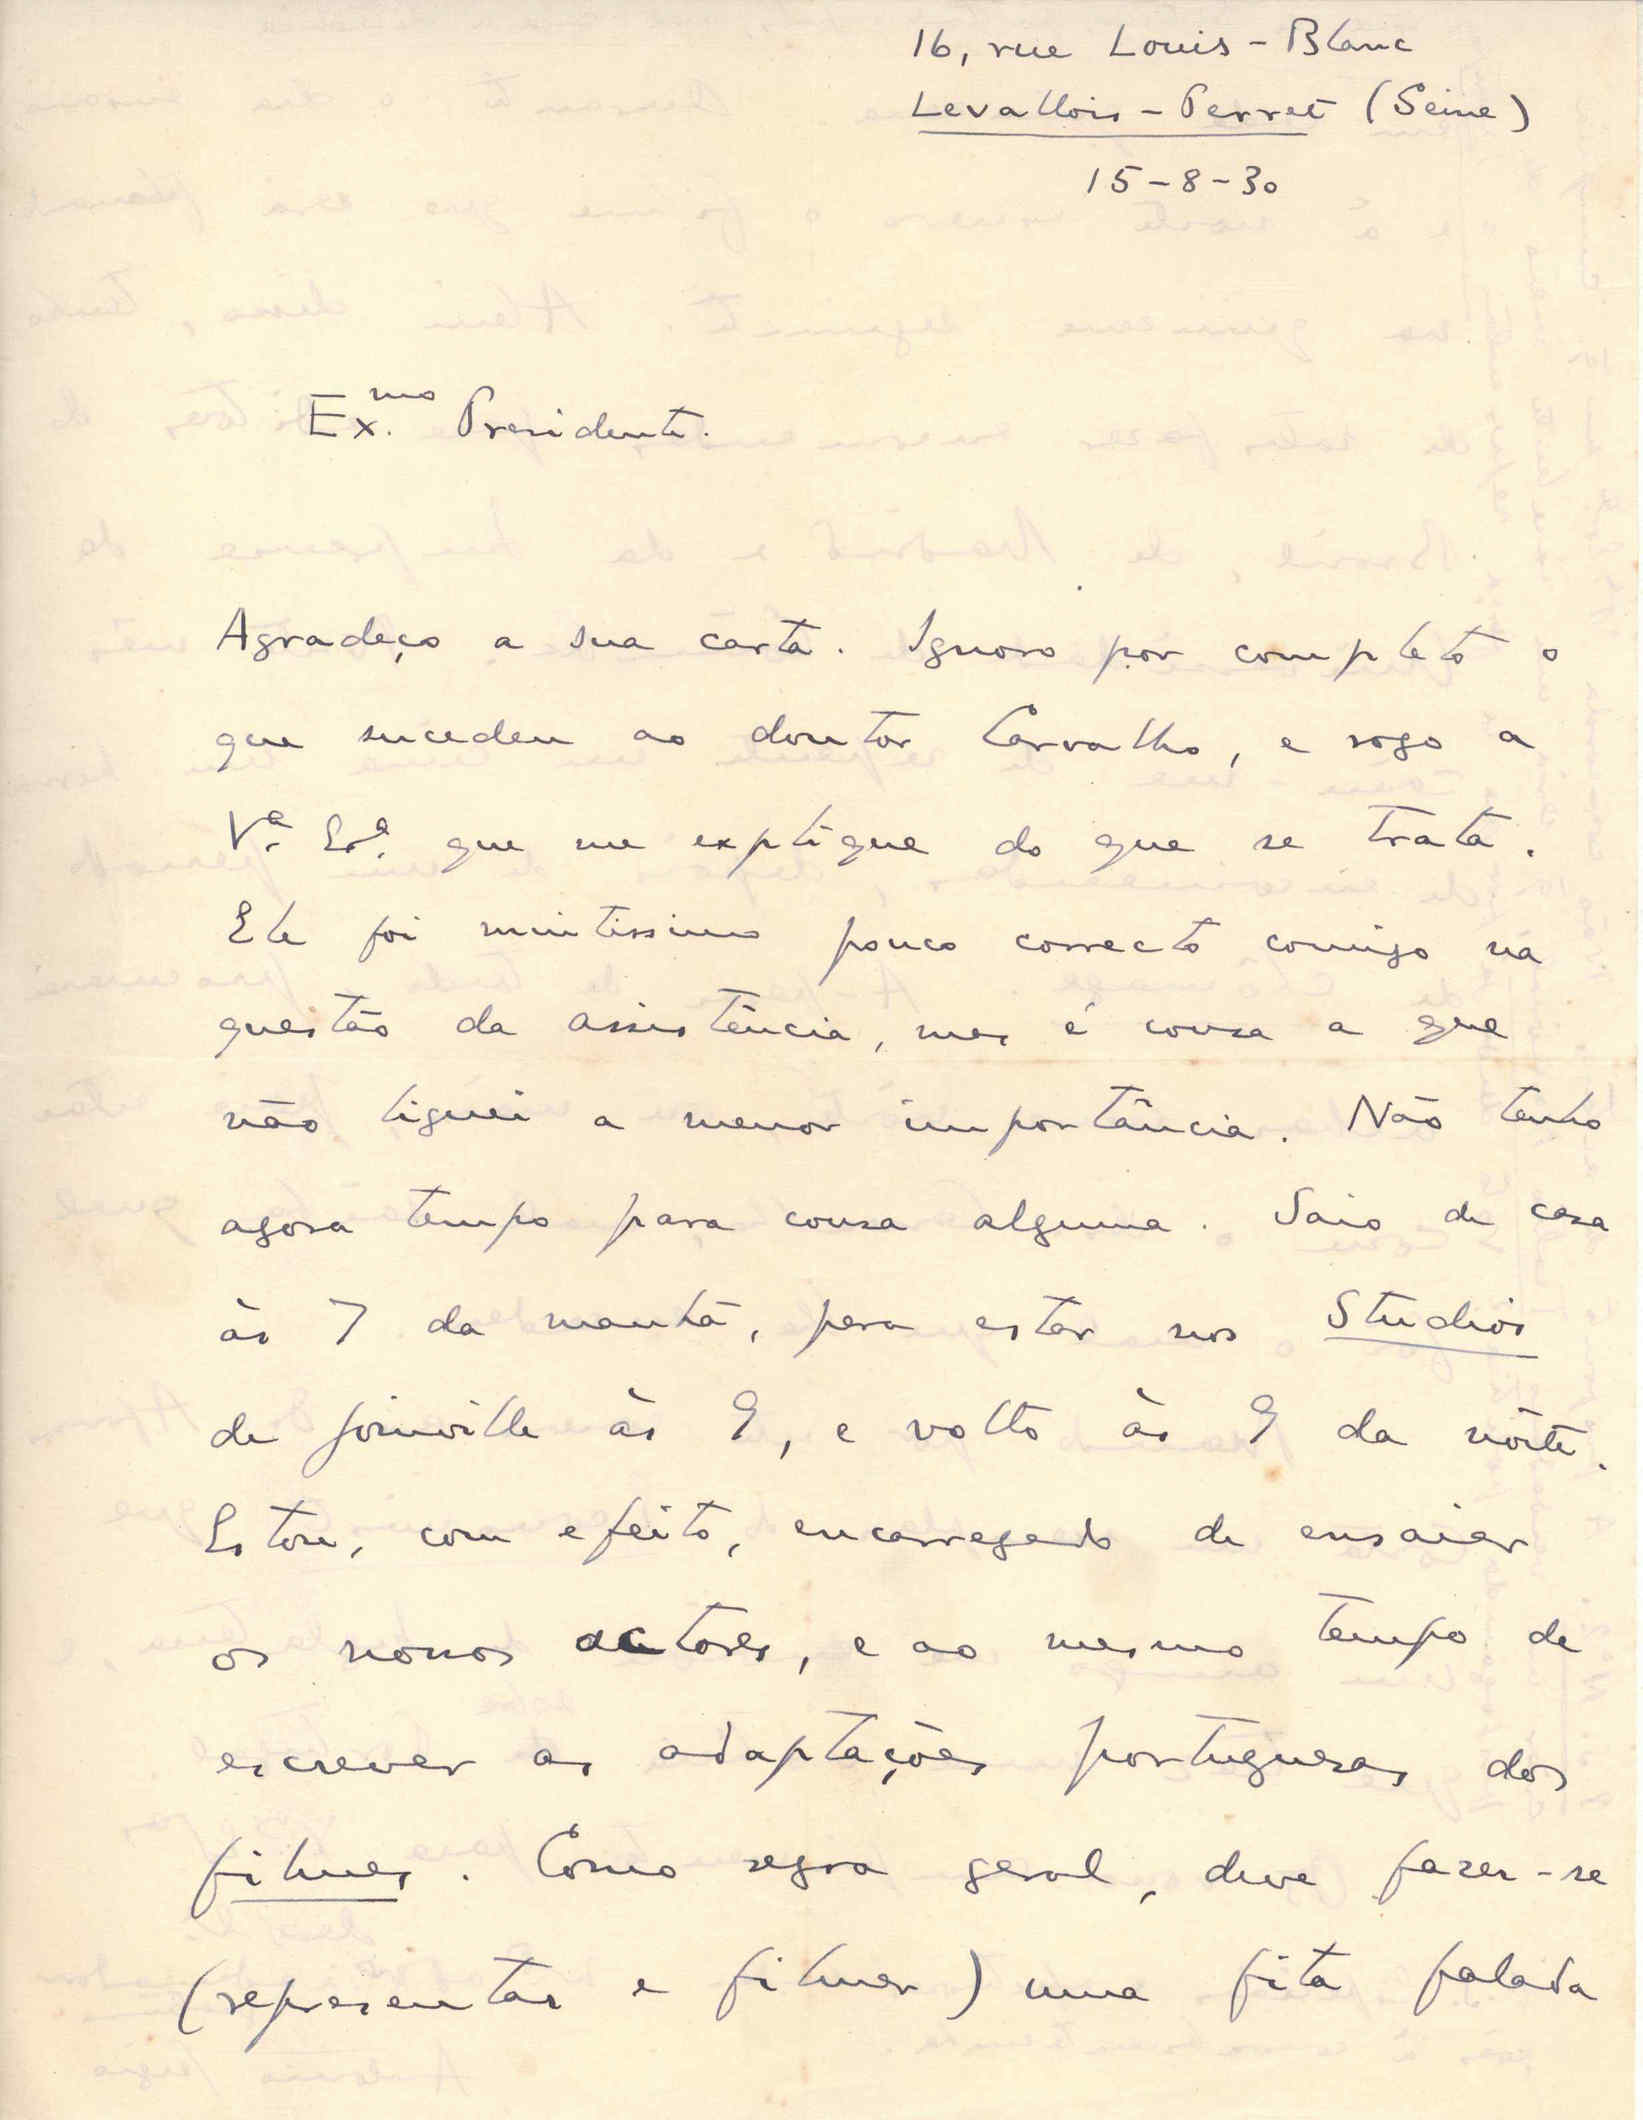 16, rue Louis-Blanc
Levallois-Perret (Seine)
15-8-30
Ex.mo Presidente.
Agradeço a sua carta. Ignoro por completo o
que sucedeu ao doutor Carvalho, e rogo a
V.ª Ex.ª que me explique do que se trata.
Ele foi muitissimo pouco correcto comigo na
questão da assistência, mas é cousa a que
não liguei a menor importância. Não tenho
agora tempo para cousa alguma. Saio de casa
às 7 da manhã, para estar nos Studios
de Joinville às 9, e volto às 9 da nòite.
Estou, com efeito, encarregado de ensaiar
os nossos actores, e ao mesmo tempo de
escrever as adaptações portuguesas dos
filmes. Como regra geral, deve fazer-se
(representar e filmar) uma fita falada